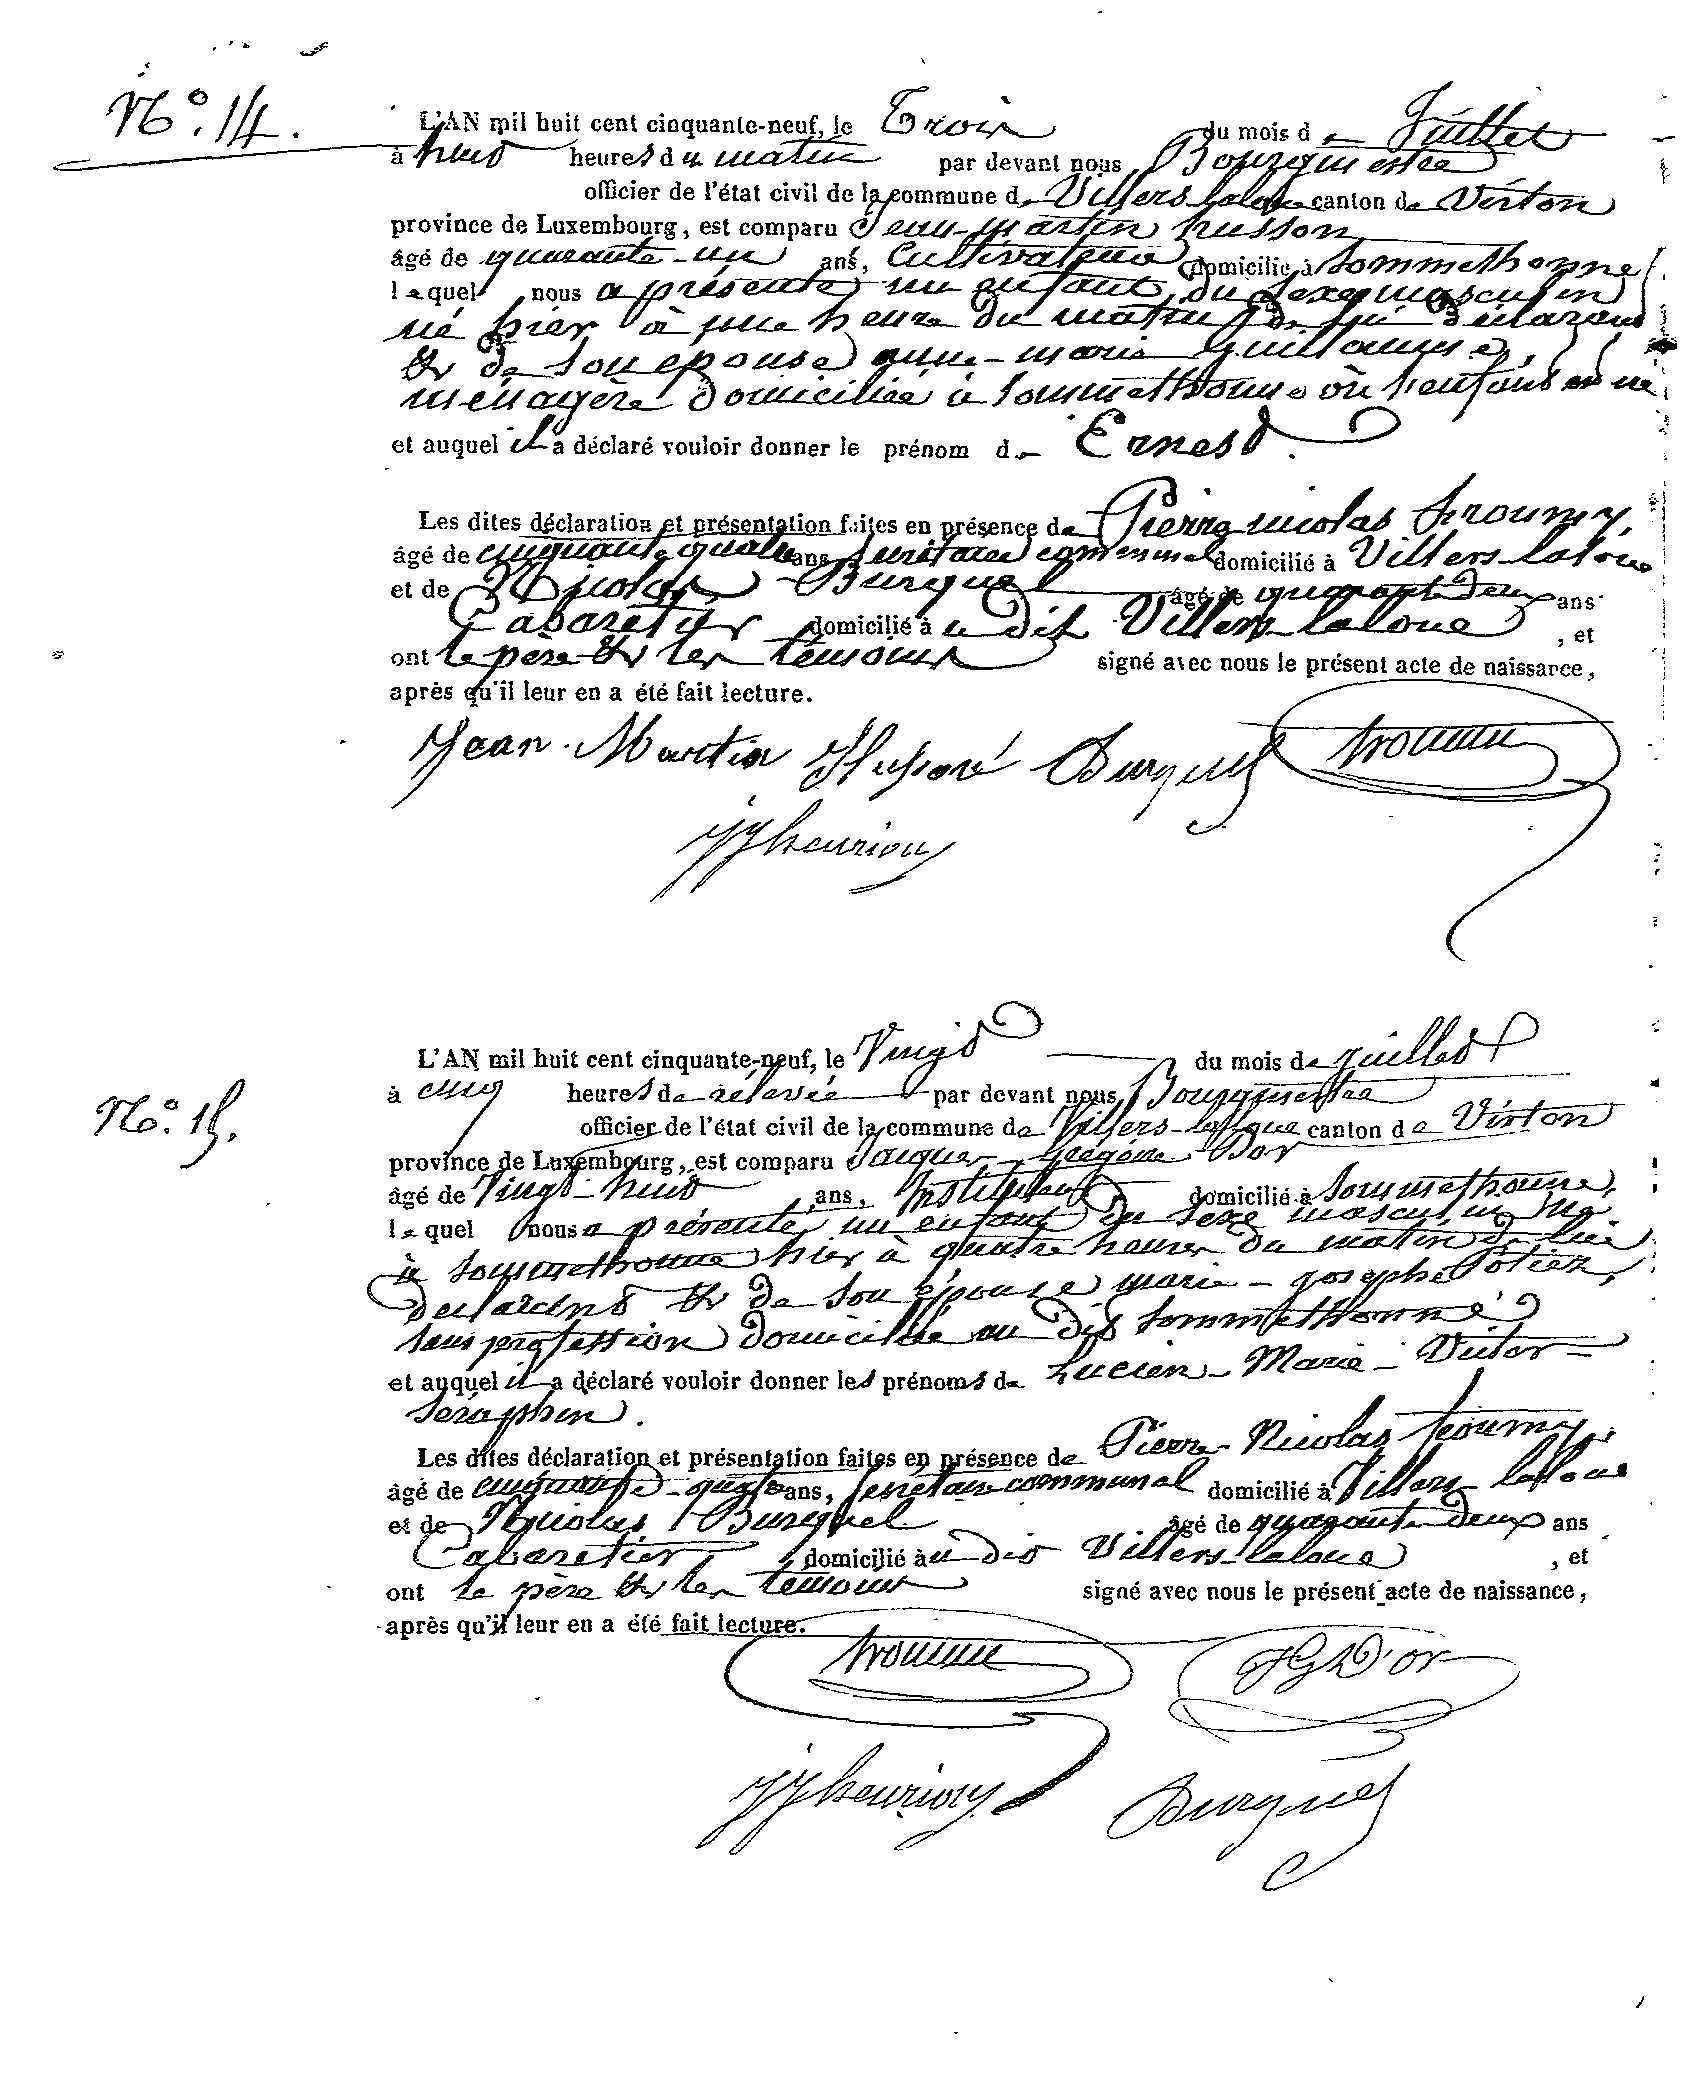 N° 14.
L'AN mil huit cent cinquante-neuf, le Trois du mois de Juillet
à huit heures du matin par devant nous Bourgmestre
officier de l'état civil de la commune de Villers-laloue canton de Virton
province de Luxembourg, est comparu Jean-martin husson
âgé de quarante-un ans, Cultivateur domicilié à Sommethonne,
lequel nous a présenté un enfant du sexe masculin
né hier à une heure du matin de lui déclarant
& de son épouse anne-marie guillaume,
ménagère domiciliée à Sommethonne où l'enfant est né
et auquel il a déclaré vouloir donner le prénom de Ernest.
Les dites déclaration et présentation faites en présence de Pierre nicolas troumy,
âgé de cinquante quatre ans secrétaire communal domicilié à Villers-laloue
et de Nicolas Burquel âgé de quarante deux ans
Cabaretier domicilié à u dit Villers-laloue, et
ont le père & les témoins signé avec nous le présent acte de naissance,
après qu'il leur en a été fait lecture.
Jean Martin Burquel
N° 15.
L'AN mil huit cent cinquante-neuf, le Vingt du mois de juillet
à cinq heures de relevée par devant nous Bourgmestre
officier de l'état civil de la commune de Villers-laloue canton de Virton
province de Luxembourg, est comparu Jacques-Grégoire Dor
âgé de Vingt-huit ans, Instituteur domicilié à Sommethonne,
lequel nous a présenté un enfant du sexe masculin né
à Sommethonne hier à quatre heures du matin de lui
déclarant & de son épouse marie-josephe Potiez,
sans profession domiciliée au dit Sommethonne
et auquel il a déclaré vouloir donner les prénoms de Lucien-Marie-Victor-
Séraphin.
Les dites déclaration et présentation faites en présence de Pierre-Nicolas troumy,
âgé de cinquante-quatre ans, secrétaire communal domicilié à Villers-laloue
et de Nicolas Burquel âgé de quarante deux ans
Cabaretier domicilié à u dit Villers-laloue, et
ont le père & les témoins signé avec nous le présent acte de naissance,
après qu'il leur en a été fait lecture.
JGD'or
Burquel